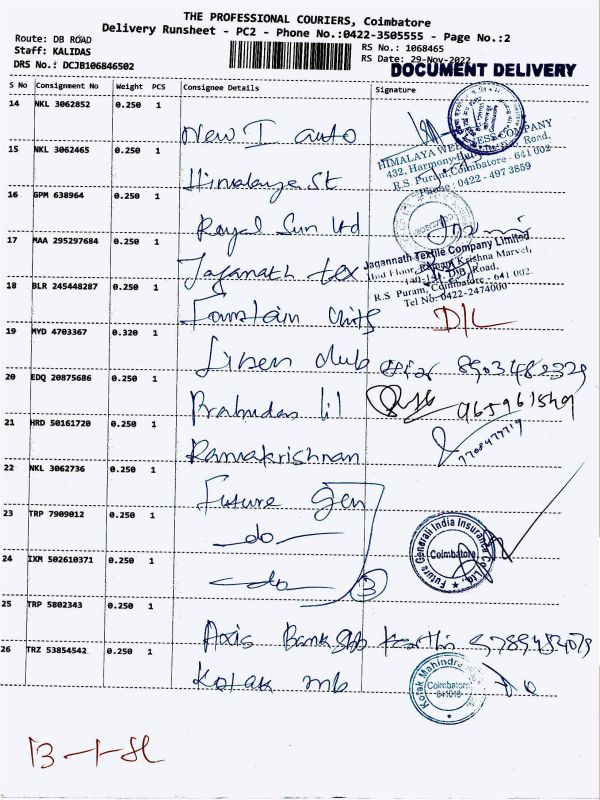 THE PROFESSIONAL COURIERS, Coimbatore
Delivery Runsheet - PC2 - Phone No.:0422-3505555 - Page No.:2
Route: DB ROAD
Staff: KALIDAS
DRS No.: DCJB106846502
RS No.: 1068465
RS Date: 29-Nov-2022
DOCUMENT DELIVERY
S No Consignment No Weight PCS Consignee Details Signature
14 NKL 3062852 0.250 1
New I auto
15 NKL 3062465 0.250 1
HIMALAYA WELLNESS COMPANY
432, Harmony D.B. Road,
R.S. Puram, Coimbatore - 641 002
Phone: 0422 - 497 3859
Himalaya St
16 GPM 638964 0.250 1
Royal Sun Ltd
17 MAA 295297684 0.250 1
Jagannath Textile Company Limited
IInd Floor, Krishna Marvel,
140-141, D.B. Road,
R.S Puram, Coimbatore - 641 002.
Tel No: 0422-2474000
Jaganath tex
18 BLR 245448287 0.250 1
Fountain Chits D/L
19 MYD 4703367 0.320 1
Linen club
20 EDQ 20875686 0.250 1
Prabudas lil
21 HRD 50161720 0.250 1
7708477719
Ramakrishnan
22 NKL 3062736 0.250 1
Future Gen
23 TRP 7909012 0.250 1
-do-
Future Generali India Insurance Co. Ltd.
Coimbatore
24 IXM 502610371 0.250 1
-do- 3
25 TRP 5802343 0.250 1
Axis Bank
26 TRZ 53854542 0.250 1
Kotak mb
Kotak Mahindra
Coimbatore
641018